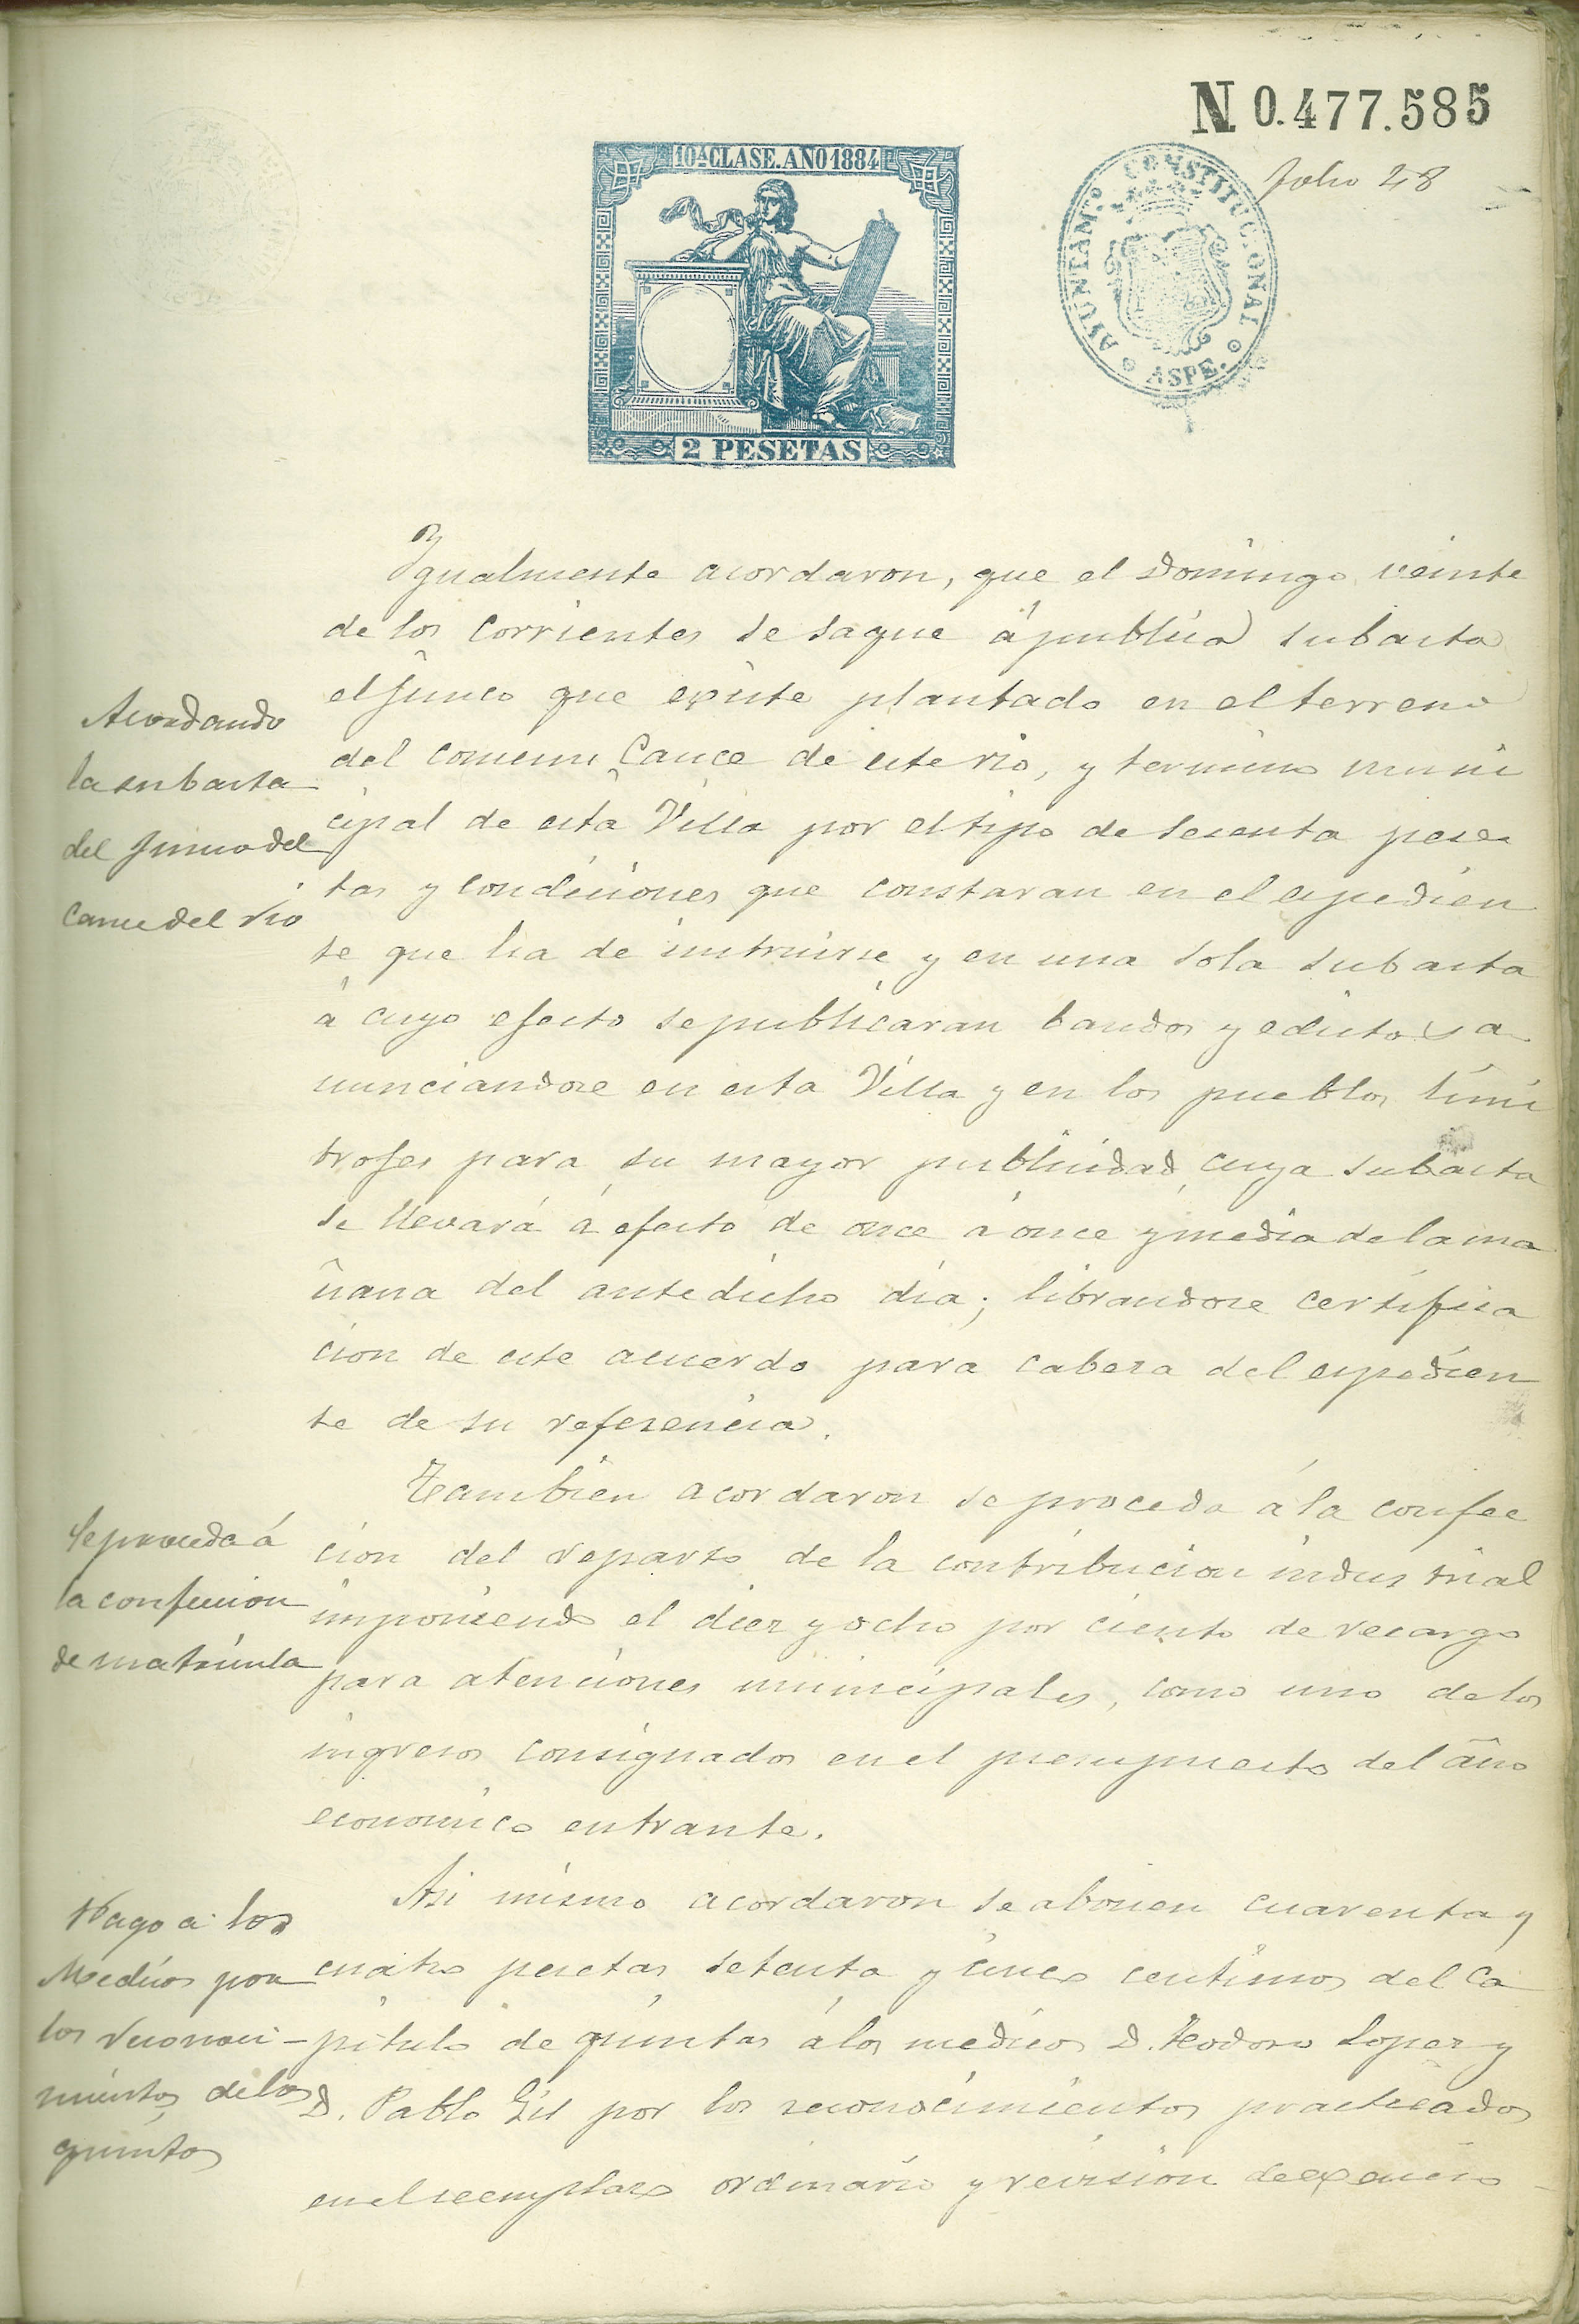 N. 0.477.585
10ª CLASE. AÑO 1884
2 PESETAS
AYUNTAM.TO CONSTITUCIONAL
ASPE.
Folio 48
Ygualmente acordaron, que el Domingo veinte
de los corrientes se saque á publica subasta
el junco que existe plantado en el terreno
del comun, Cauce de este rio, y termino muni
cipal de esta Villa por el tipo de sesenta pese
tas y condiciones que constaran en el espedien
te que ha de instruirse y en una sola subasta
á cuyo efecto se publicaran bandos y edictos a
nunciandose en esta Villa y en los pueblos limi
trofes para su mayor publicidad, cuya subasta
se llevará á efecto de once á once y media de la ma
ñana del antedicho dia; librandose certifica
cion de este acuerdo para cabeza del espedien
te de su referencia.
Acordando
la subasta
del Junco del
Cauce del rio
Tambien acordaron se proceda á la confec
cion del reparto de la contribucion industrial
imponiendo el diez y ocho por ciento de recargo
para atenciones municipales, como uno de los
ingresos consignados en el presupuesto del año
economico entrante.
Se proceda á
la confeccion
de matricula
Asi mismo acordaron se abonen cuarenta y
cuatro pesetas setenta y cinco centimos del Ca
pitulo de quintas á los medicos D. Teodoro Lopez y
D. Pablo Gil por los reconocimientos practicados
en el reemplazo ordinario y revision de
Pago a los
Medicos por
los reconoci-
mientos de los
quintos